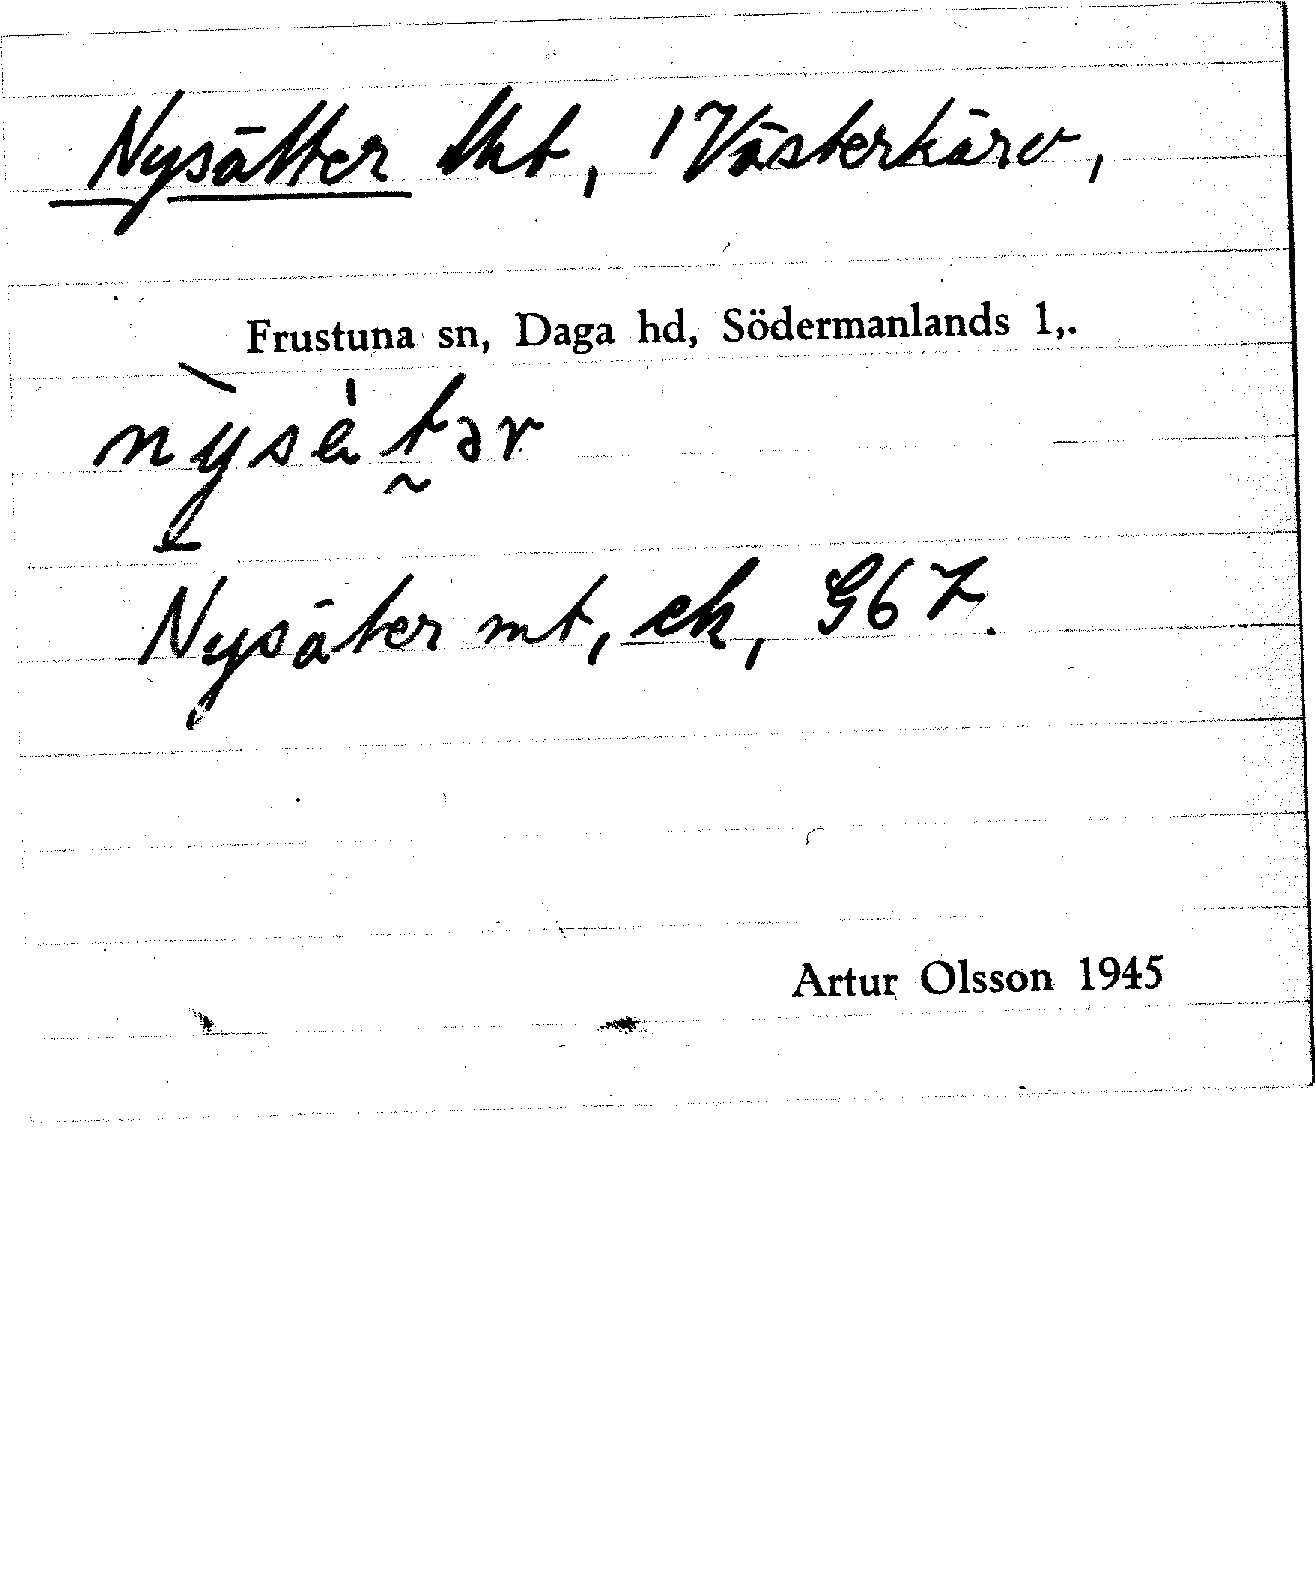 Nysätter lht, 1 Västerkärv,
Frustuna sn, Daga hd, Södermanlands l,.
nỳsȧ̀tər
Nysäter mt, ek, G67.
Artur Olsson 1945